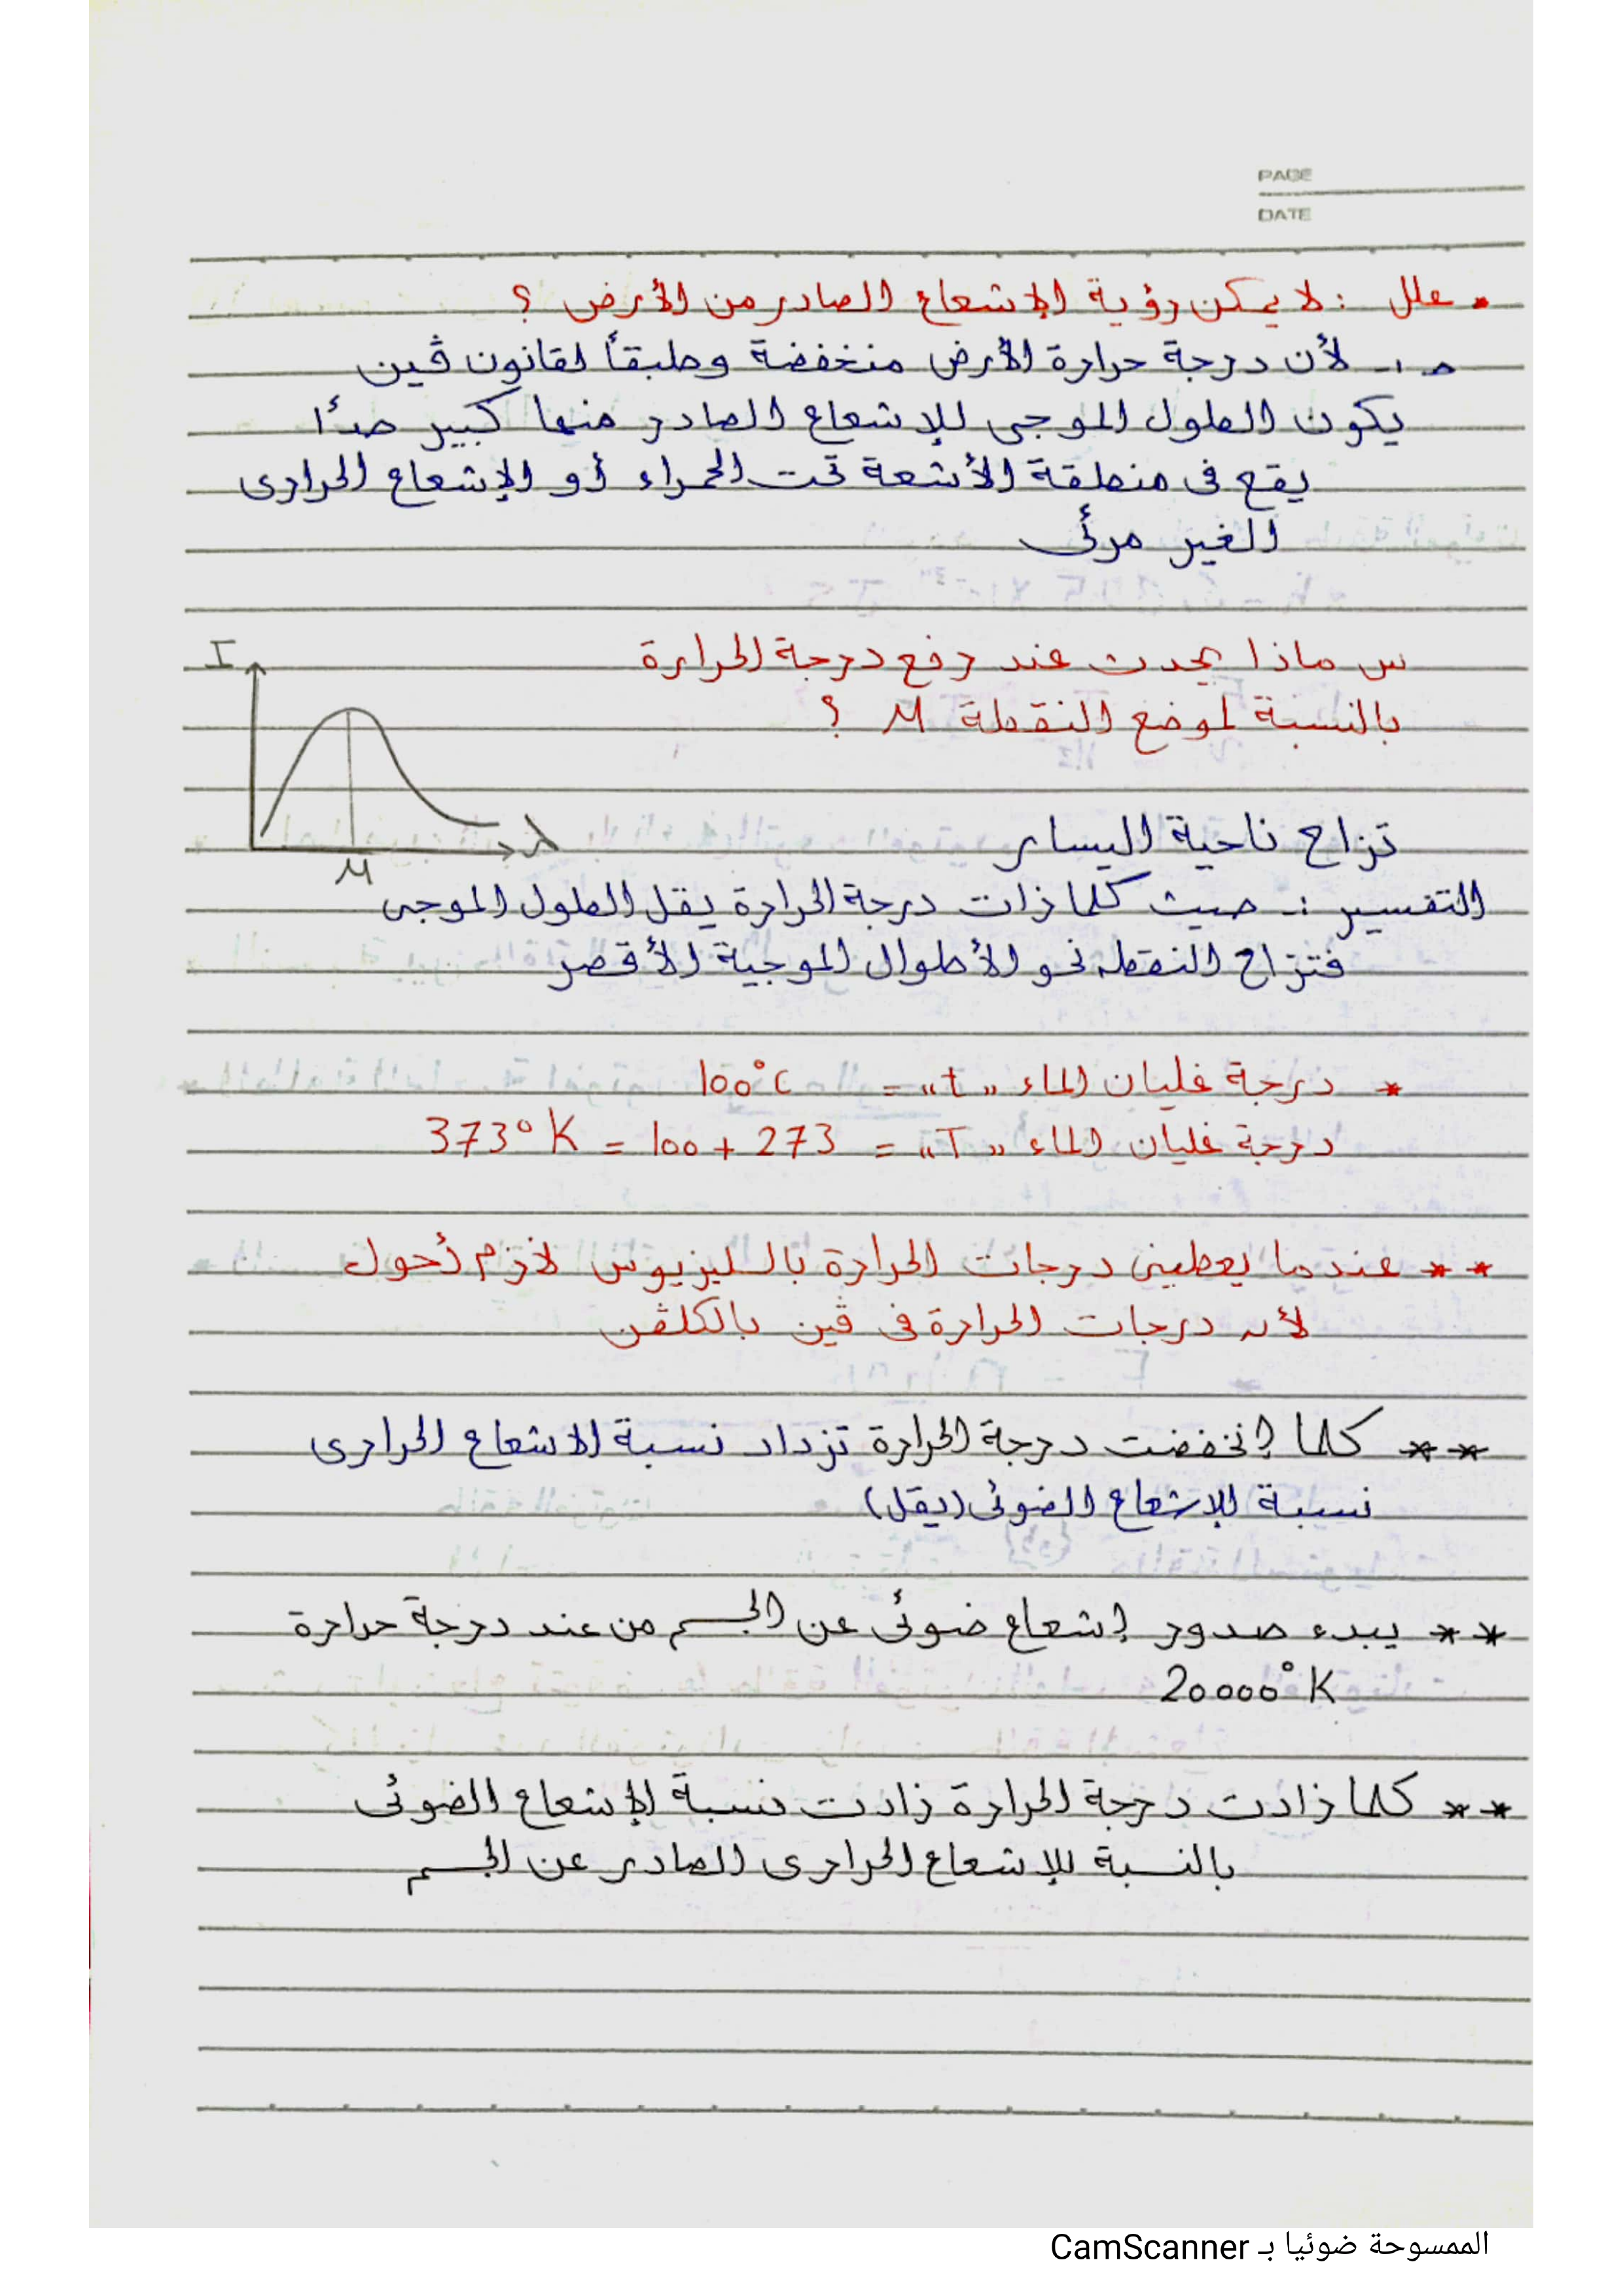 PAGE
DATE
• علل : لا يمكن رؤية الإشعاع الصادر من الأرض ؟
حـ ١ـ لأن درجة حرارة الأرض منخفضة وطبقاً لقانون ڤين
يكون الطول الموجى للإشعاع الصادر منها كبير جدًا
يقع فى منطقة الأشعة تحت الحمراء أو الإشعاع الحرارى
الغير مرئى
س ماذا يحدث عند رفع درجة الحرارة
بالنسبة لموضع النقطة M ؟
I
λ
M
تزاح ناحية اليسار
التفسير :ـ حيث كلما ذات درجة الحرارة يقل الطول الموجى
فتزاح النقطه نحو الأطوال الموجية الأقصر
* درجة غليان الماء "t" = 100°C
درجة غليان الماء "T" = 273 + 100 = 373°K
** عندما يعطينى درجات الحرارة بالسليزيوس لازم أحول
لأن درجات الحرارة فى ڤين بالكلڤن
** كلما إنخفضت درجة الحرارة تزداد نسبة الاشعاع الحرارى
نسبة للإشعاع الضوئى (يقل)
** يبدء صدور إشعاع ضوئى عن الجسم من عند درجة حرارة
20000°K
** كلما زادت درجة الحرارة زادت نسبة الإشعاع الضوئى
بالنسبة للإشعاع الحرارى الصادر عن الجسم
الممسوحة ضوئيا بـ CamScanner